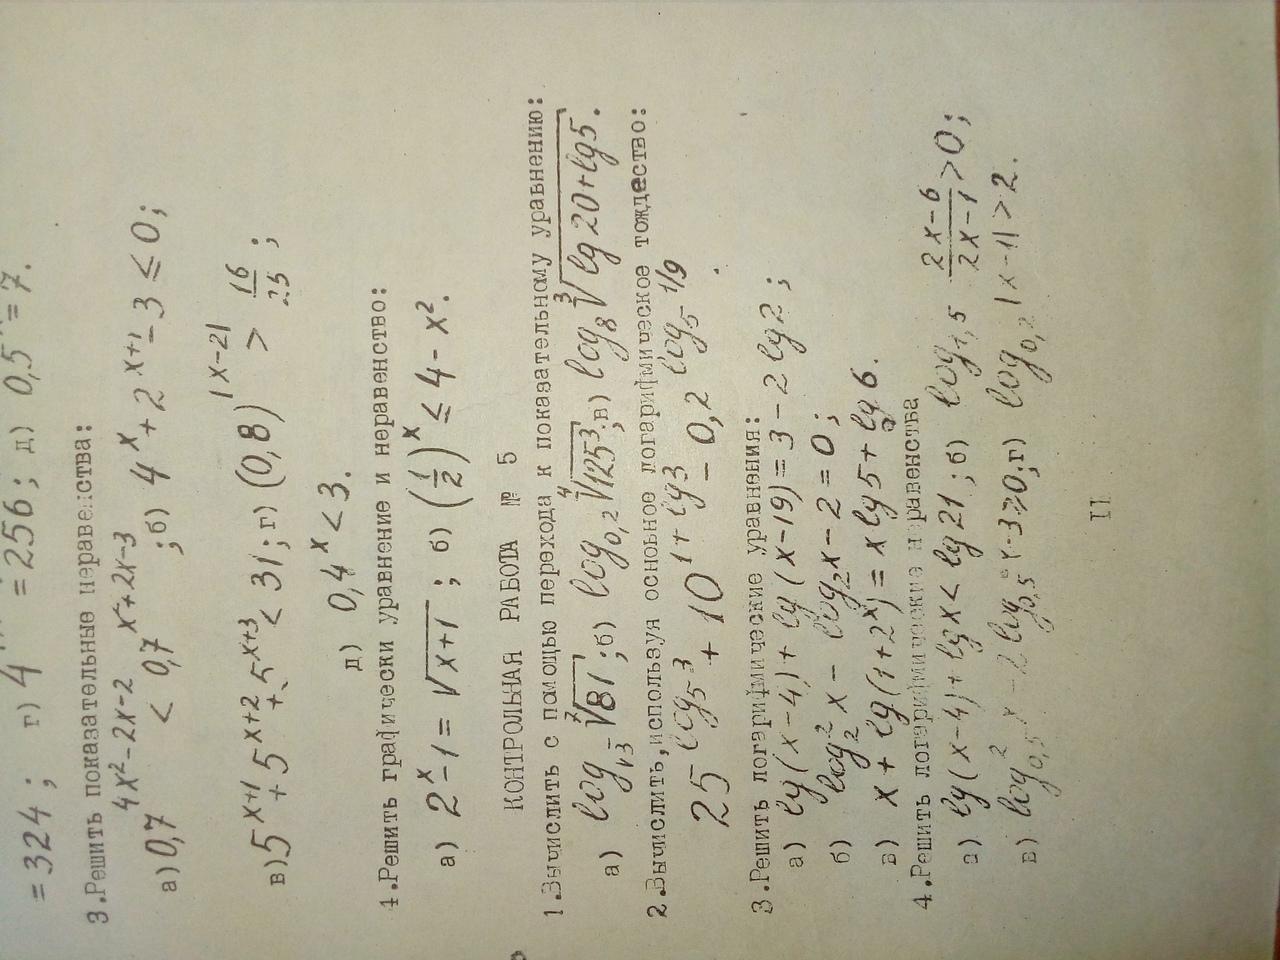 = 324; г) 4 = 256; д) 0,5 = 7.
3.Решить показательные неравенства:
а) 0,7^(4x²-2x-2) < 0,7^(x²+2x-3); б) 4^x + 2^(x+1) - 3 ≤ 0;
в) 5^(x+1) + 5^(x+2) + 5^(x+3) < 31; г) (0,8)^|x-2| > 16/25;
д) 0,4^x < 3.
4.Решить графически уравнение и неравенство:
а) 2^x - 1 = √(x+1); б) (1/2)^x ≤ 4 - x².
КОНТРОЛЬНАЯ РАБОТА № 5
1.Вычислить с помощью перехода к показательному уравнению:
а) log_√3 ⁷√81; б) log_0,2 ⁴√125³; в) log_8 ³√(lg 20 + lg 5).
2.Вычислить,используя основное логарифмическое тождество:
25^(log_5 3) + 10^(1+lg3) - 0,2^(log_5 1/9).
3.Решить логарифмические уравнения:
а) lg(x-4) + lg(x-19) = 3 - 2 lg 2;
б) log_2² x - log_2 x - 2 = 0;
в) x + lg(1+2^x) = x lg 5 + lg 6.
4.Решить логарифмические неравенства
а) lg(x-4) + lg x < lg 21; б) log_1,5 (2x-6)/(2x-1) > 0;
в) log_0,5² x - 2 log_0,5 x - 3 ≥ 0; г) log_0,2 |x-1| > 2.
II